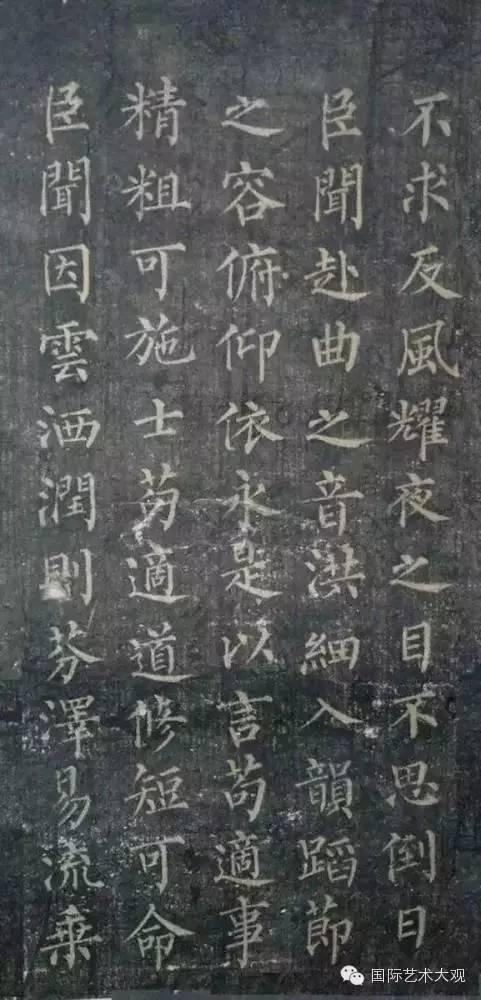 不求反風耀夜之目不思倒日
臣聞赴曲之音洪細入韻蹈節
之容俯仰依永是以言苟適事
精粗可施士苟適道修短可命
臣聞因雲洒潤則芬澤易流乗
国际艺术大观